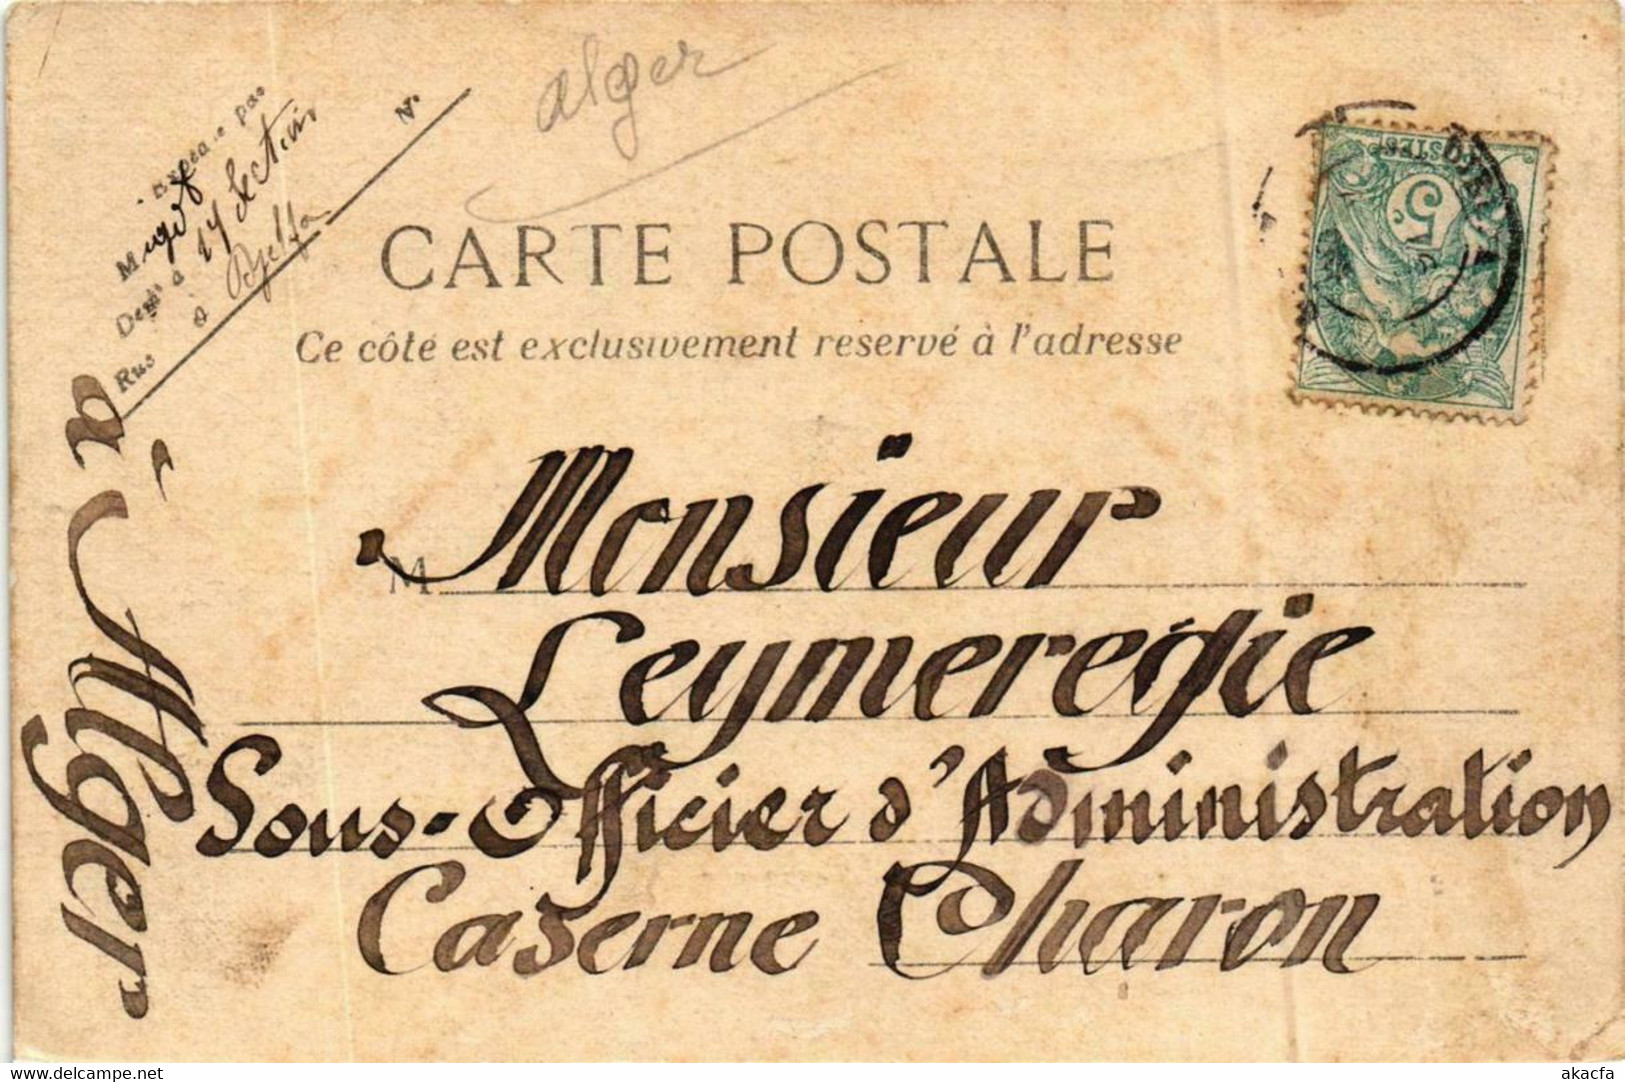 Alger
Expédié par
M
Dem^t à 17 Section
à Djelfa
Rue N°
CARTE POSTALE
Ce côté est exclusivement reservé à l'adresse
POSTES
5c
DJELFA
M Monsieur
Leymeregie
Sous-Officier d'Administration
Caserne Charon
à Alger
www.delcampe.net
akacfa